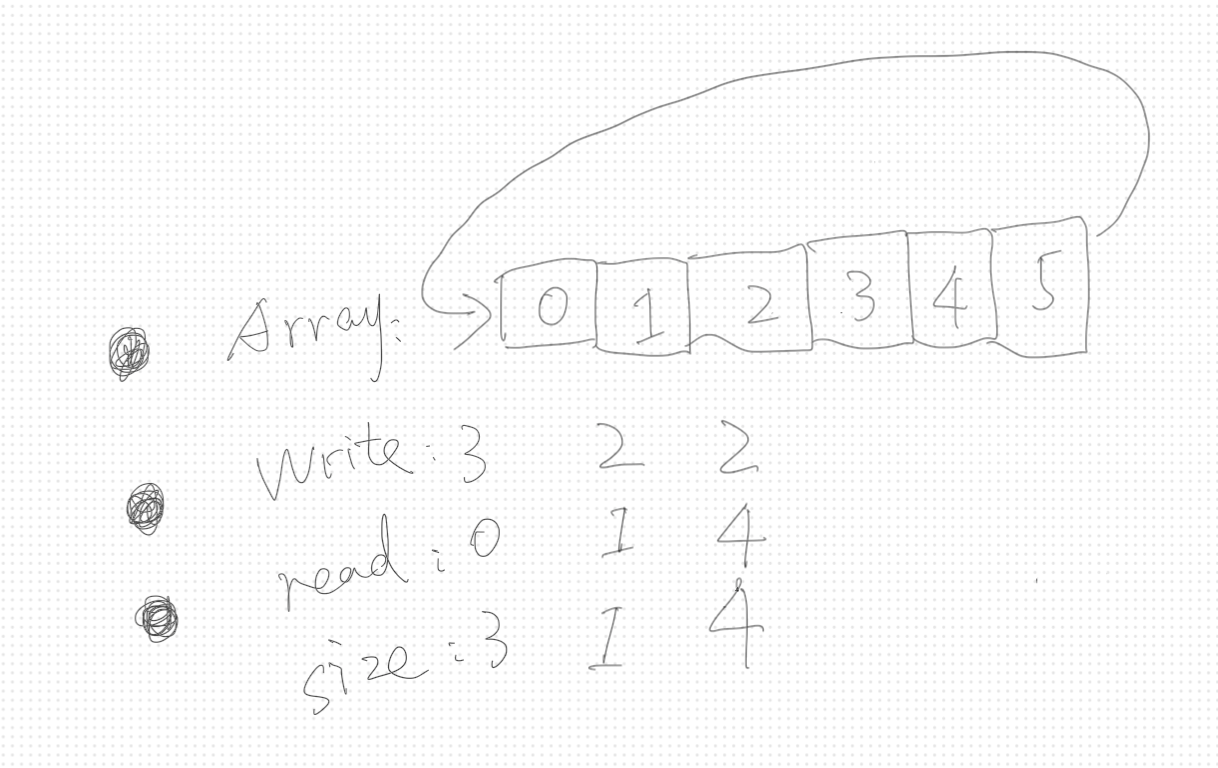 Array: 0 1 2 3 4 5
Write: 3 2 2
read: 0 1 4
size: 3 1 4